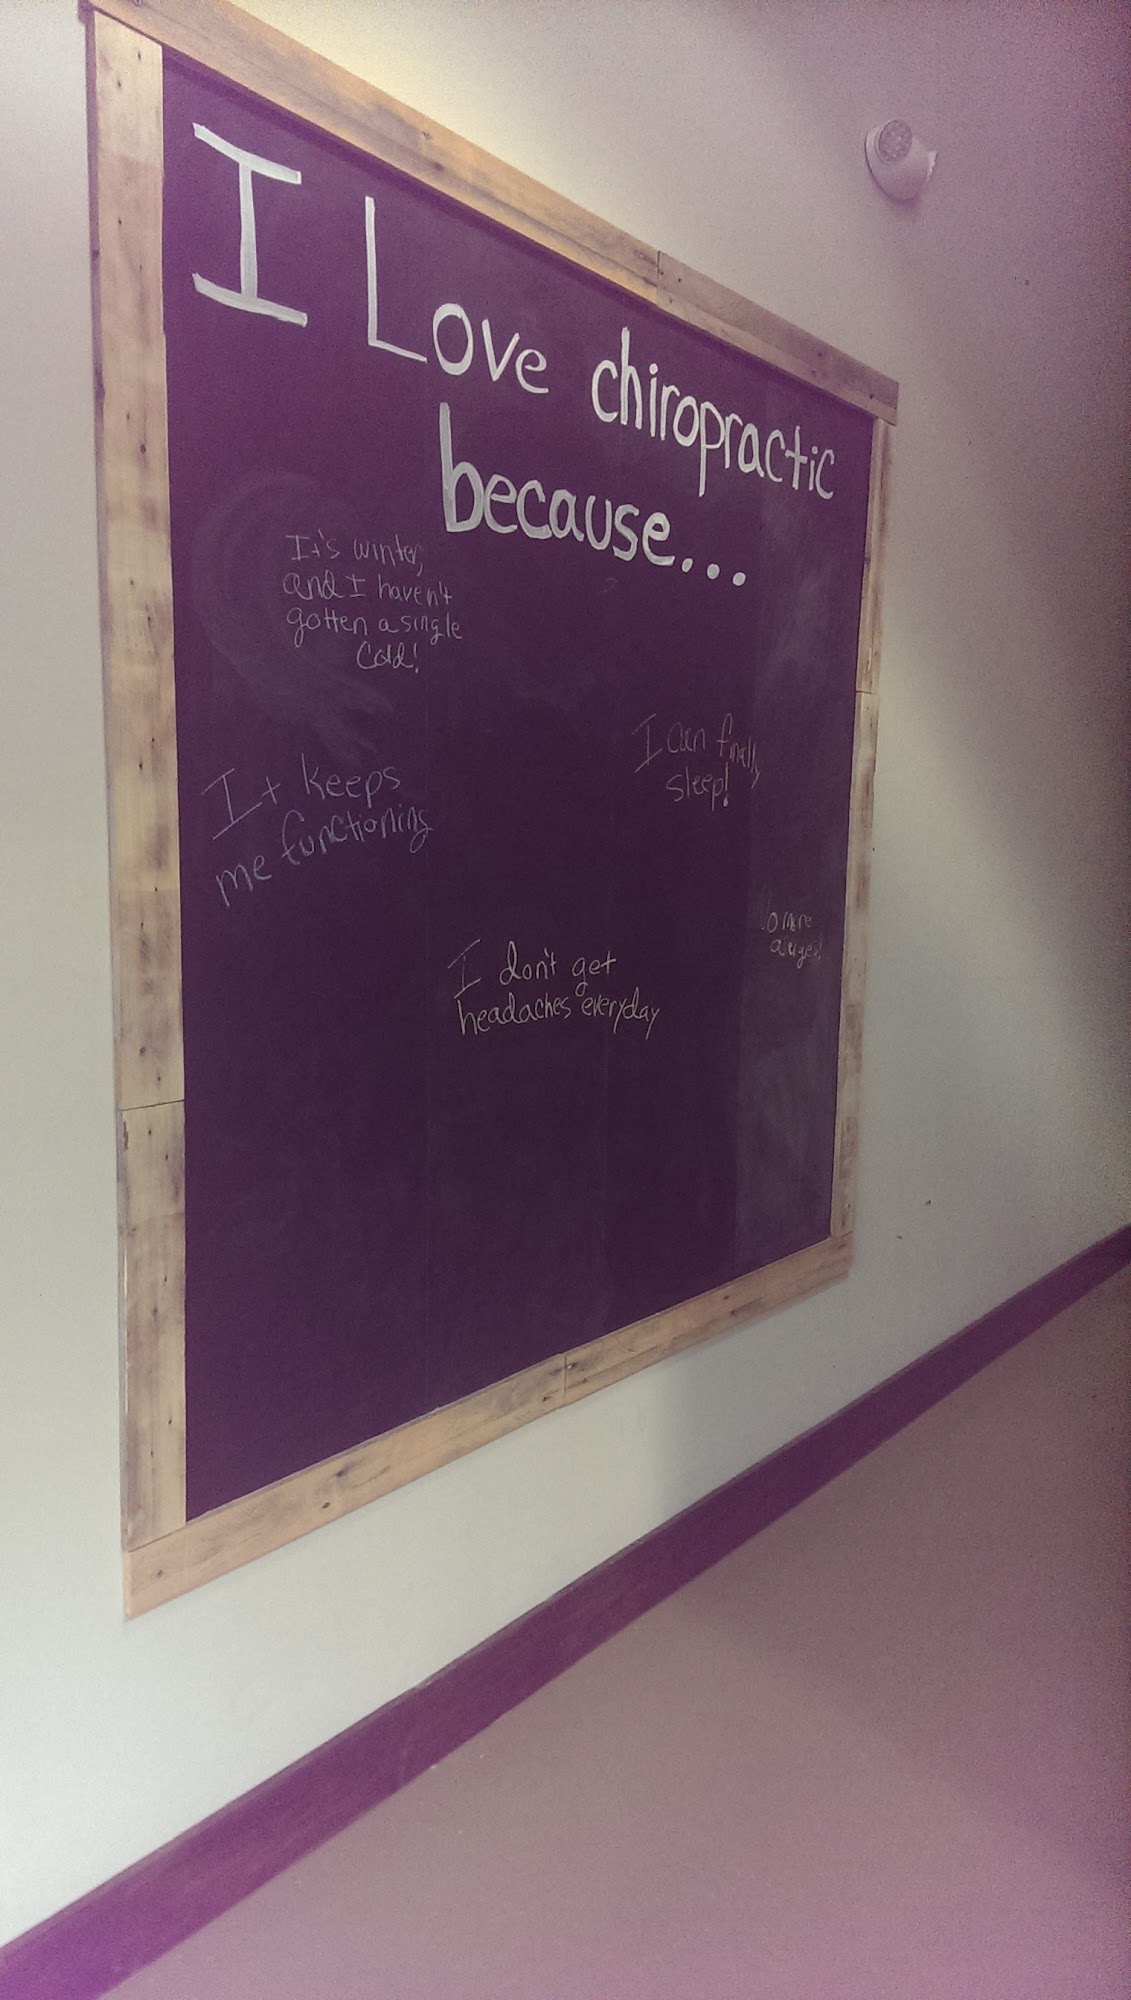 I Love chiropractic
because...
It's winter,
and I haven't
gotten a single
Cold!
I can finally
sleep!
It keeps
me functioning
No more
I don't get
headaches everyday